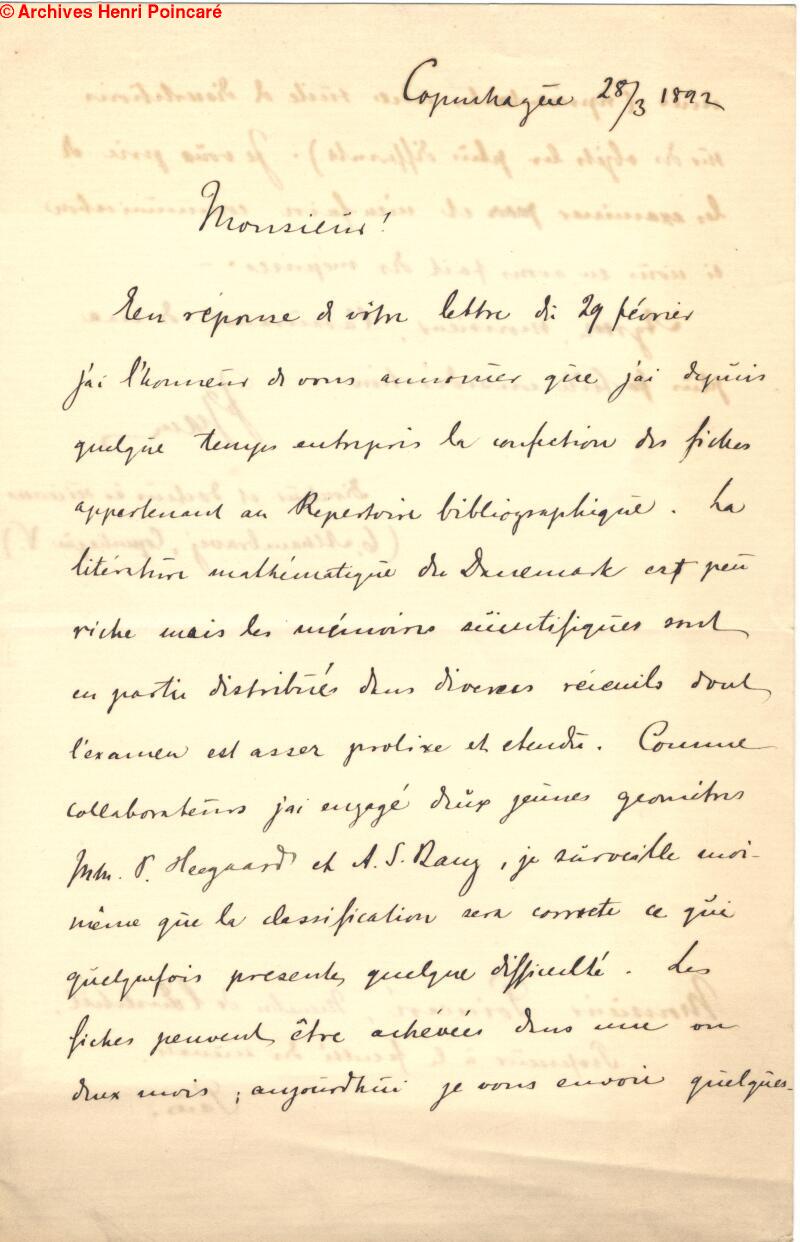 © Archives Henri Poincaré
Copenhague 28/3 1892
Monsieur!
En réponse de votre lettre du 29 février
j'ai l'honneur de vous annoncer que j'ai depuis
quelque temps entrepris la confection des fiches
appartenant au Répertoire bibliographique. La
litérature mathématique du Danemark est peu
riche mais les mémoires scientifiques sont
en partie distribués dans diverses recueils dont
l'examen est assez prolixe et etendu. Comme
collaborateurs j'ai engagé deux jeunes geomètres
Mm. P. Heegaard et A. S. Bang, je surveille moi-
même que la classification sera correcte ce qui
quelquefois presente quelque difficulté. Les
fiches peuvent être achévées dans une ou
deux mois; aujourdhui je vous envoie quelques-